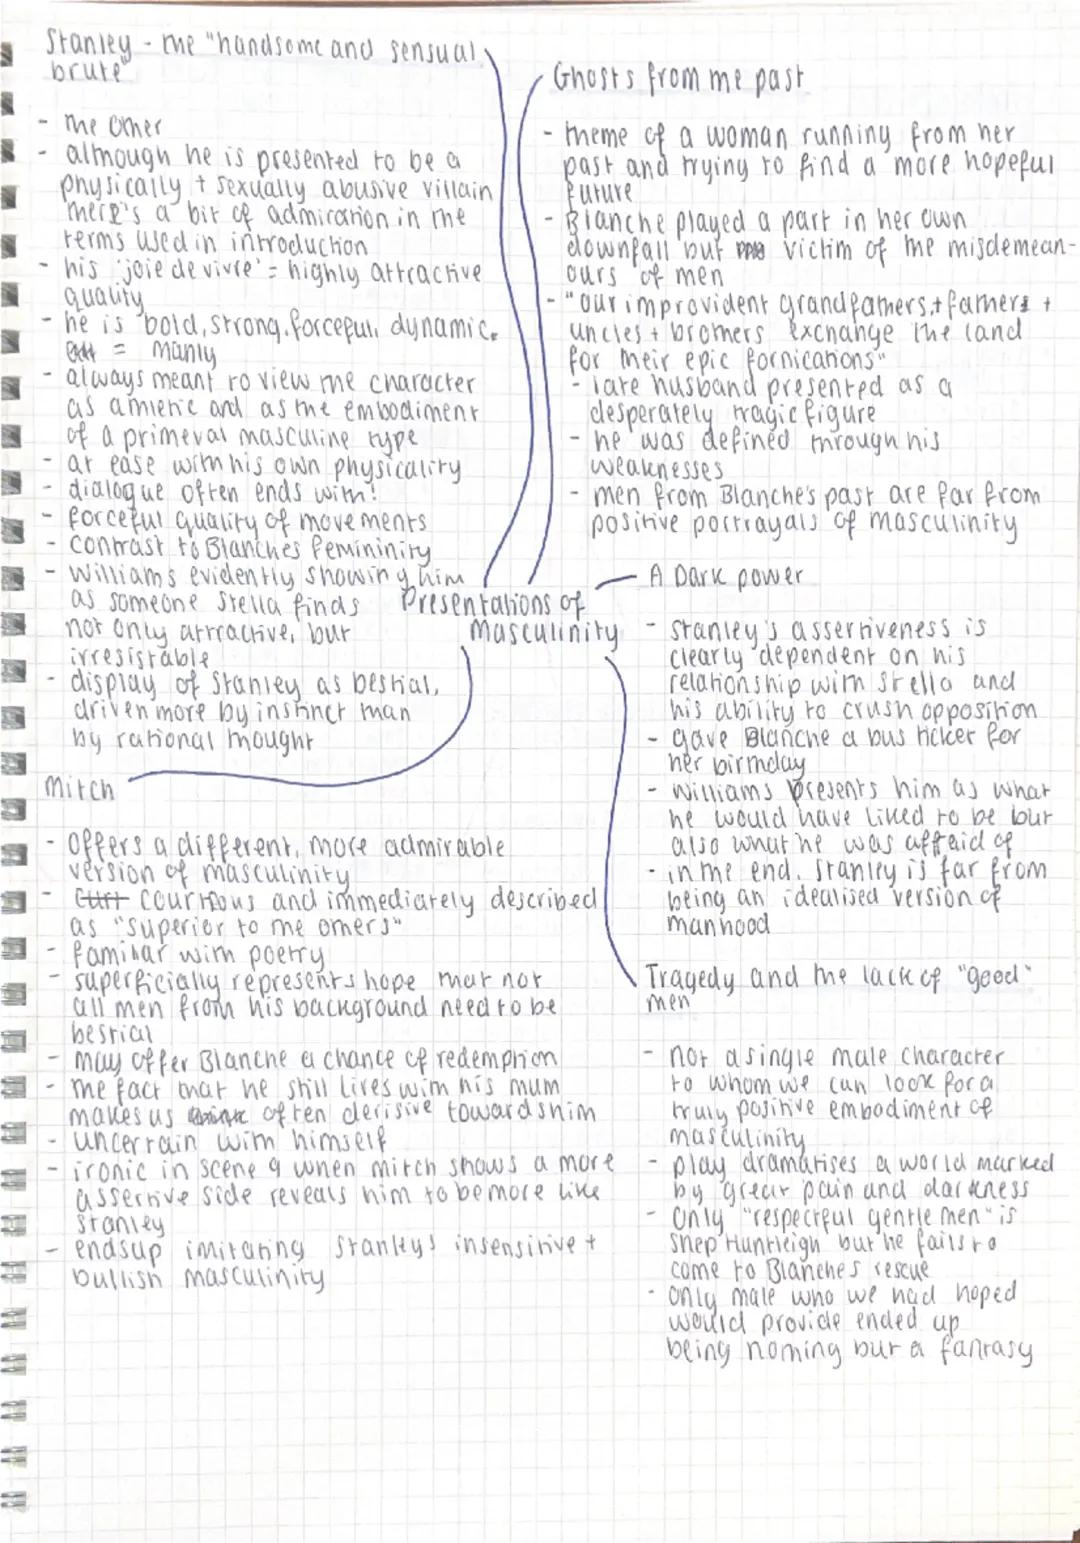 Stanley - the "handsome and sensual
brute"
- the other
- although he is presented to be a
physically + sexually abusive villain
there's a bit of admiration in the
terms used in introduction
- his 'joie de vivre' = highly attractive
quality
- he is bold, strong, forceful, dynamic,
= manly
- always meant to view the character
as athletic and as the embodiment
of a primeval masculine type
- at ease with his own physicality
- dialogue often ends with!
- forceful quality of movements
- contrast to Blanches femininity
- Williams evidently showing him
as someone Stella finds
not only attractive, but
irresistable
- display of Stanley as bestial,
driven more by instinct than
by rational thought
Ghosts from the past
- theme of a woman running from her
past and trying to find a more hopeful
future
- Blanche played a part in her own
downfall but victim of the misdemean-
ours of men
- "our improvident grandfathers, + fathers +
uncles + brothers exchange the land
for their epic fornications"
- late husband presented as a
desperately tragic figure
- he was defined through his
weaknesses
- men from Blanche's past are far from
positive portrayals of masculinity
Presentations of
Masculinity
A Dark power
- Stanley's assertiveness is
clearly dependent on his
relationship with Stella and
his ability to crush opposition
- gave Blanche a bus ticket for
her birthday
- Williams presents him as what
he would have liked to be but
also what he was affraid of
- in the end, Stanley is far from
being an idealised version of
manhood
Mitch
- Offers a different, more admirable
version of masculinity
- courtious and immediately described
as "superior to the others"
- familiar with poetry
- superficially represents hope that not
all men from his background need to be
bestial
- may offer Blanche a chance of redemption
- the fact that he still lives with his mum
makes us often derisive towards him
- uncertain with himself
- ironic in scene 9 when mitch shows a more
assertive side reveals him to be more like
Stanley
- ends up imitating Stanleys insensitive +
bullish masculinity
Tragedy and the lack of "good"
men
- not a single male character
to whom we can look for a
truly positive embodiment of
masculinity
- play dramatises a world marked
by great pain and darkness
- Only "respectful gentlemen" is
Shep Huntleigh but he fails to
come to Blanches rescue
- only male who we had hoped
would provide ended up
being nothing but a fantasy